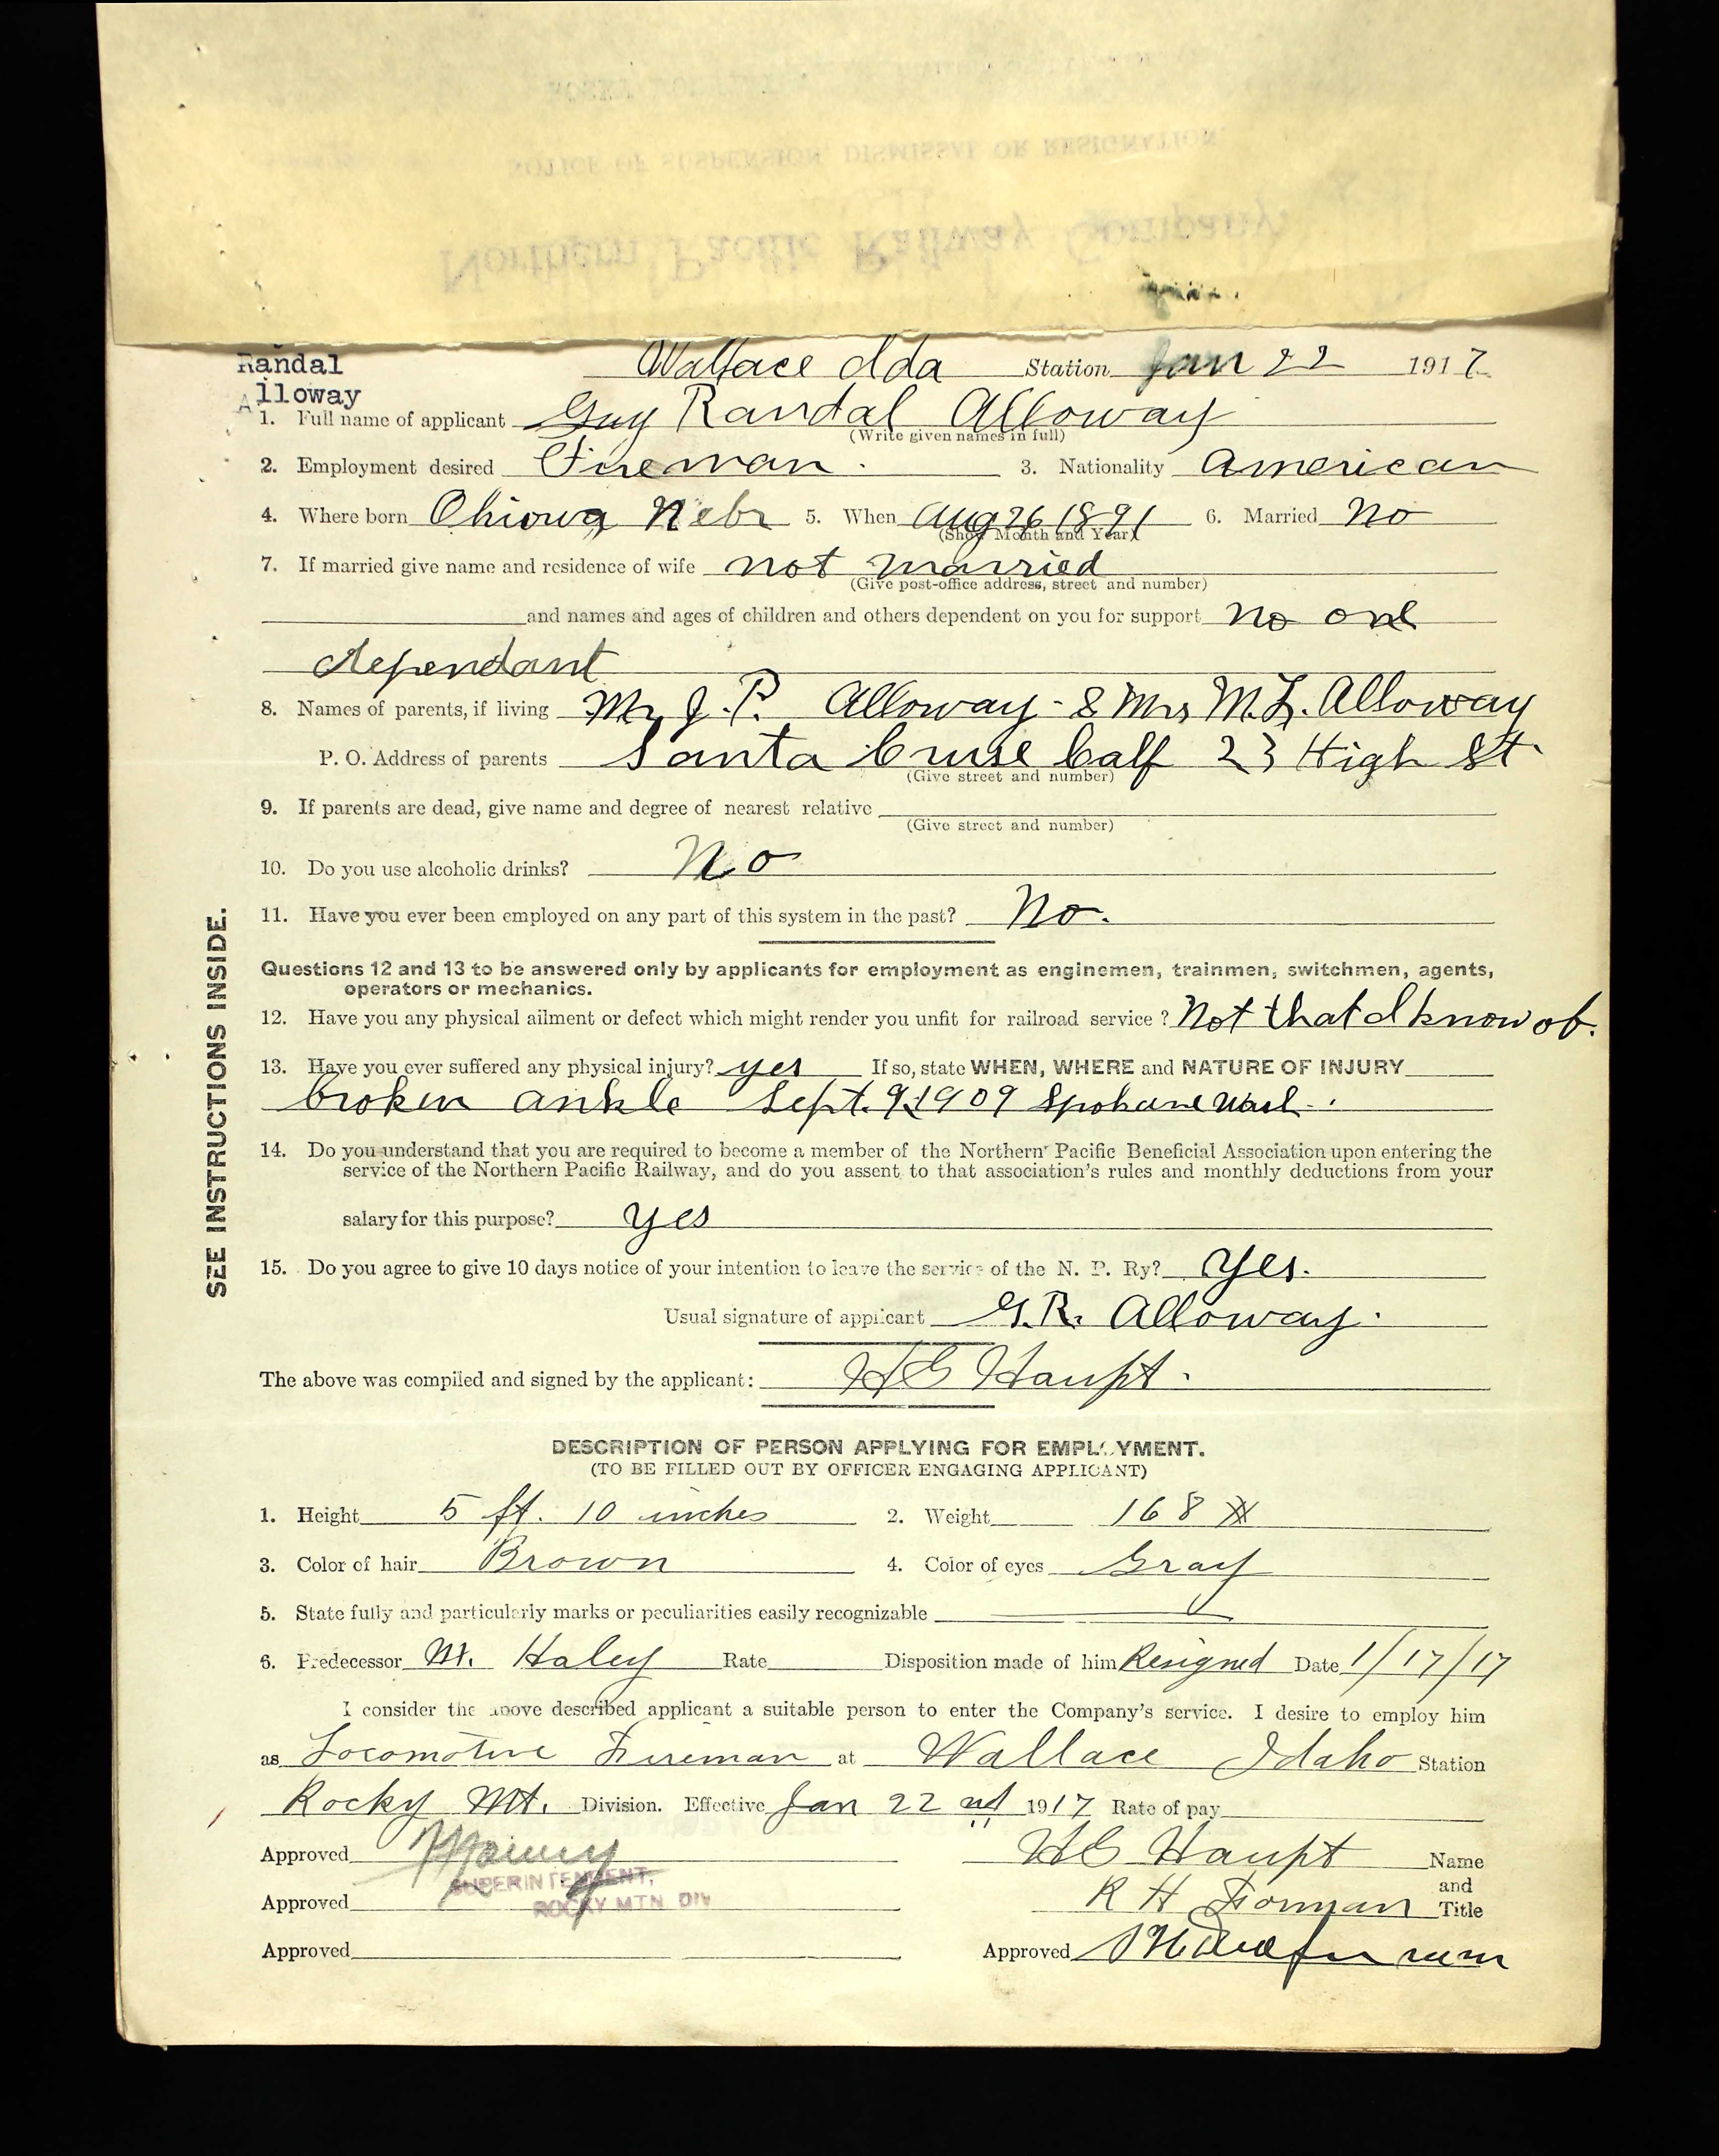 NOTICE OF SUSPENSION, DISMISSAL OR RESIGNATION
Northern Pacific Railway Company
Randal
Alloway
Wallace Ida Station Jan 22 1917
1. Full name of applicant Guy Randal Alloway
(Write given names in full)
2. Employment desired Fireman. 3. Nationality American
4. Where born Ohiowa Nebr 5. When Aug 26 1891 6. Married No
(Show Month and Year)
7. If married give name and residence of wife not married
(Give post-office address, street and number)
and names and ages of children and others dependent on you for support no one
dependant
8. Names of parents, if living Mr J. P. Alloway - & Mrs M. L. Alloway
P. O. Address of parents Santa Cruse Calf 23 High St.
(Give street and number)
9. If parents are dead, give name and degree of nearest relative
(Give street and number)
10. Do you use alcoholic drinks? No
11. Have you ever been employed on any part of this system in the past? No.
Questions 12 and 13 to be answered only by applicants for employment as enginemen, trainmen, switchmen, agents,
operators or mechanics.
12. Have you any physical ailment or defect which might render you unfit for railroad service? Not that I know of.
13. Have you ever suffered any physical injury? yes If so, state WHEN, WHERE and NATURE OF INJURY
broken ankle Sept. 9 1909 Spokane Wash.
14. Do you understand that you are required to become a member of the Northern Pacific Beneficial Association upon entering the
service of the Northern Pacific Railway, and do you assent to that association's rules and monthly deductions from your
salary for this purpose? yes
15. Do you agree to give 10 days notice of your intention to leave the service of the N. P. Ry? Yes.
Usual signature of applicant G. R. Alloway.
The above was compiled and signed by the applicant: H C Haupt.
SEE INSTRUCTIONS INSIDE.
DESCRIPTION OF PERSON APPLYING FOR EMPLOYMENT.
(TO BE FILLED OUT BY OFFICER ENGAGING APPLICANT)
1. Height 5 ft. 10 inches 2. Weight 168 #
3. Color of hair Brown 4. Color of eyes Gray
5. State fully and particularly marks or peculiarities easily recognizable
6. Predecessor M. Haley Rate Disposition made of him Resigned Date 1/17/17
I consider the above described applicant a suitable person to enter the Company's service. I desire to employ him
as Locomotive Fireman at Wallace Idaho Station
Rocky Mt. Division. Effective Jan 22 nd 1917 Rate of pay
Approved H C Haupt Name
SUPERINTENDENT,
and
Approved R H Forman Title
ROCKY MTN. DIV
Approved Approved